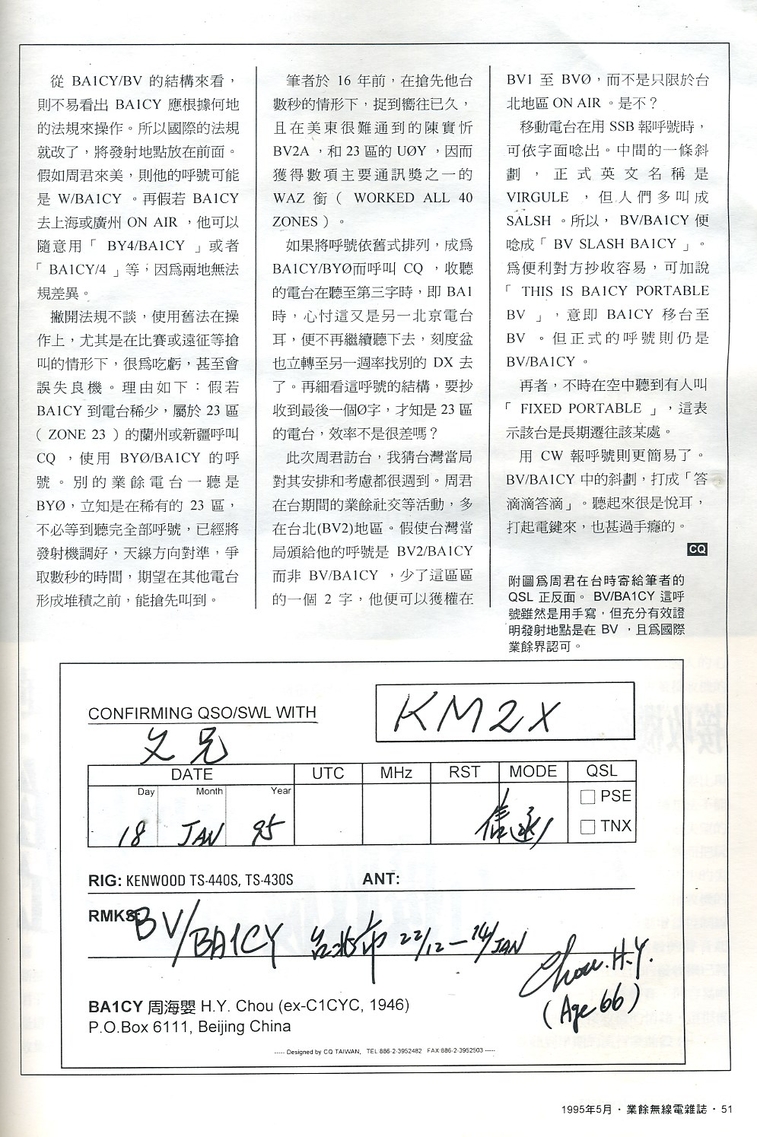 從 BA1CY/BV 的結構來看，
則不易看出 BA1CY 應根據何地
的法規來操作。所以國際的法規
就改了，將發射地點放在前面。
假如周君來美，則他的呼號可能
是 W/BA1CY 。再假若 BA1CY
去上海或廣州 ON AIR ，他可以
隨意用「 BY4/BA1CY 」或者
「 BA1CY/4 」等；因爲兩地無法
規差異。
撇開法規不談，使用舊法在操
作上，尤其是在比賽或遠征等搶
叫的情形下，很爲吃虧，甚至會
誤失良機。理由如下：假若
BA1CY 到電台稀少，屬於 23 區
（ ZONE 23 ）的蘭州或新疆呼叫
CQ ，使用 BYØ/BA1CY 的呼
號。別的業餘電台一聽是
BYØ，立知是在稀有的 23 區，
不必等到聽完全部呼號，已經將
發射機調好，天線方向對準，爭
取數秒的時間，期望在其他電台
形成堆積之前，能搶先叫到。
筆者於 16 年前，在搶先他台
數秒的情形下，捉到嚮往已久，
且在美東很難通到的陳實忻
BV2A ，和 23 區的 UØY ，因而
獲得數項主要通訊獎之一的
WAZ 銜（ WORKED ALL 40
ZONES ）。
如果將呼號依舊式排列，成爲
BA1CY/BYØ而呼叫 CQ ，收聽
的電台在聽至第三字時，即 BA1
時，心忖這又是另一北京電台
耳，便不再繼續聽下去，刻度盆
也立轉至另一週率找別的 DX 去
了。再細看這呼號的結構，要抄
收到最後一個Ø字，才知是 23 區
的電台，效率不是很差嗎？
此次周君訪台，我猜台灣當局
對其安排和考慮都很週到。周君
在台期間的業餘社交等活動，多
在台北(BV2)地區。假使台灣當
局頒給他的呼號是 BV2/BA1CY
而非 BV/BA1CY ，少了這區區
的一個 2 字，他便可以獲權在
BV1 至 BVØ，而不是只限於台
北地區 ON AIR 。是不？
移動電台在用 SSB 報呼號時，
可依字面唸出。中間的一條斜
劃，正式英文名稱是
VIRGULE ，但人們多叫成
SALSH 。所以， BV/BA1CY 便
唸成「 BV SLASH BA1CY 」。
爲便利對方抄收容易，可加說
「 THIS IS BA1CY PORTABLE
BV 」，意即 BA1CY 移台至
BV 。但正式的呼號則仍是
BV/BA1CY 。
再者，不時在空中聽到有人叫
「 FIXED PORTABLE 」，這表
示該台是長期遷往該某處。
用 CW 報呼號則更簡易了。
BV/BA1CY 中的斜劃，打成「答
滴滴答滴」。聽起來很是悅耳，
打起電鍵來，也甚過手癮的。
CQ
附圖爲周君在台時寄給筆者的
QSL 正反面。 BV/BA1CY 這呼
號雖然是用手寫，但充分有效證
明發射地點是在 BV ，且爲國際
業餘界認可。
CONFIRMING QSO/SWL WITH
KM2X
文兄
DATE UTC MHz RST MODE QSL
Day Month Year
18 JAN 95 信函
PSE
TNX
RIG: KENWOOD TS-440S, TS-430S ANT:
RMKS:
BV/BA1CY 台北市 22/12－14/JAN
Chou. H.Y.
(Age 66)
BA1CY 周海嬰 H.Y. Chou (ex-C1CYC, 1946)
P.O.Box 6111, Beijing China
----- Designed by CQ TAIWAN, TEL 886-2-3952482 FAX 886-2-3952503 -----
1995年5月・業餘無線電雜誌・51